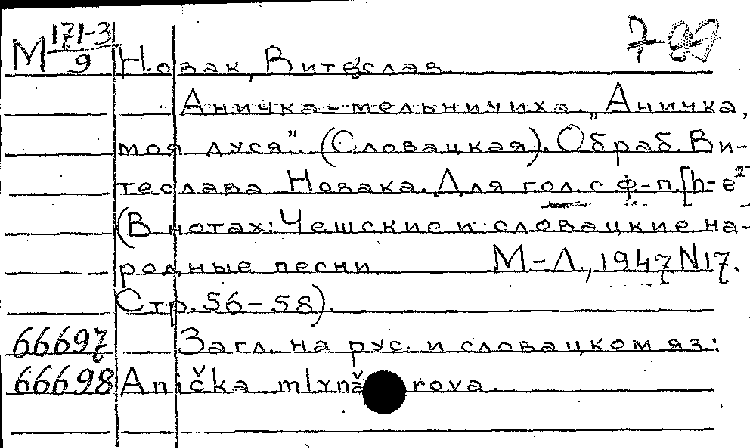 М 171-3/9 Новак, Витеслав
Аничка-мельничиха „Аничка,
моя дуся". (Словацкая). Обраб. Ви-
теслава Новака. Для гол. с ф-п. [h-e²]
(В нотах: Чешские и словацкие на-
родные песни М-Л., 1947 N17.
Стр. 56-58).
66697 Загл. на рус. и словацком яз:
66698 Anička mlyná rova.